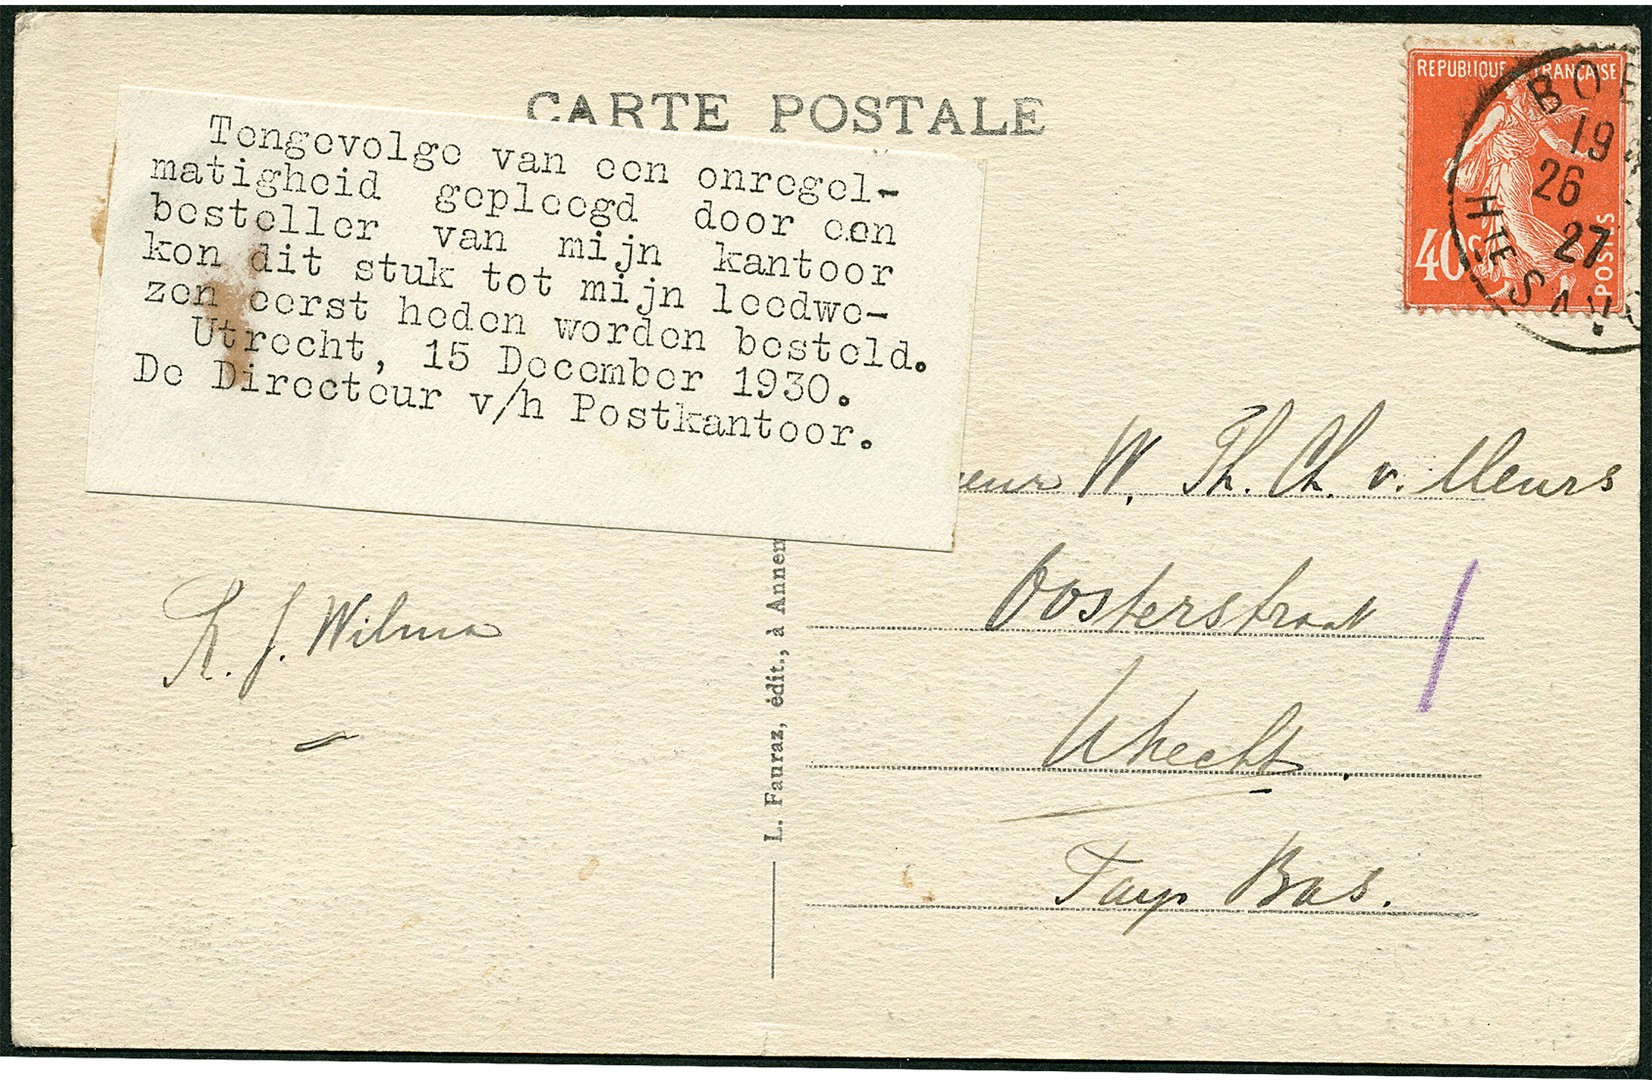 CARTE POSTALE
REPUBLIQUE FRANÇAISE
40c
POSTES
BO
19
26
27
HTE SAVO
Tengevolge van een onregel-
matigheid gepleegd door een
besteller van mijn kantoor
kon dit stuk tot mijn leedwe-
zen eerst heden worden besteld.
Utrecht, 15 December 1930.
De Directeur v/h Postkantoor.
ieur W. Th. Ch. v. Meurs
Oosterstraat
Utrecht.
Pays Bas.
J. Wilma
L. Fauraz, édit., à Annen